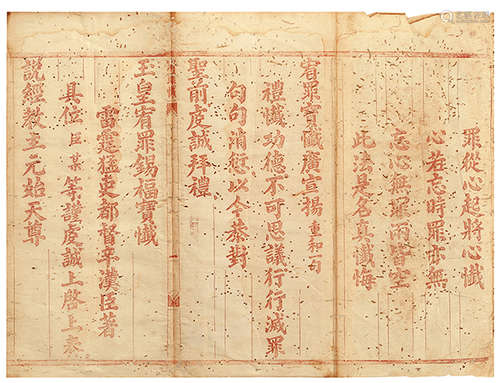 罪從心起將心懺
心若忘時罪亦無
忘心無罪兩皆空
此法是名真懺悔
宥罪寶懺廣宣揚 重和一句
禮懺功德不可思議行行滅罪
句句消愆以今恭對
聖前虔誠拜禮
玉皇宥罪錫福寶懺
雷霆猛吏都督辛漢臣著
具位臣某等謹虔誠上啓上奏
說經教主元始天尊